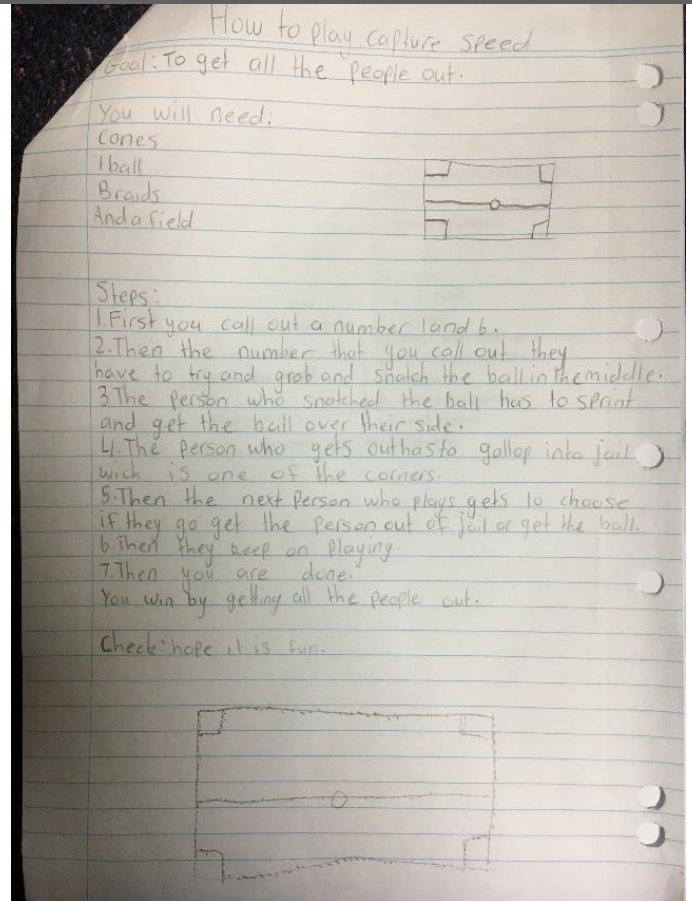 How to play capture speed
Goal: To get all the people out.
You will need:
Cones
1 ball
Braids
And a field
Steps:
1. First you call out a number 1 and 6.
2. Then the number that you call out they
have to try and grab and snatch the ball in the middle.
3 The person who snatched the ball has to sprint
and get the ball over their side.
4. The person who gets out has to gallop into jail
wich is one of the corners.
5. Then the next person who plays gets to choose
if they go get the person out of jail or get the ball.
6 Then they keep on playing.
7. Then you are done.
You win by getting all the people out.
Check: hope it is fun.